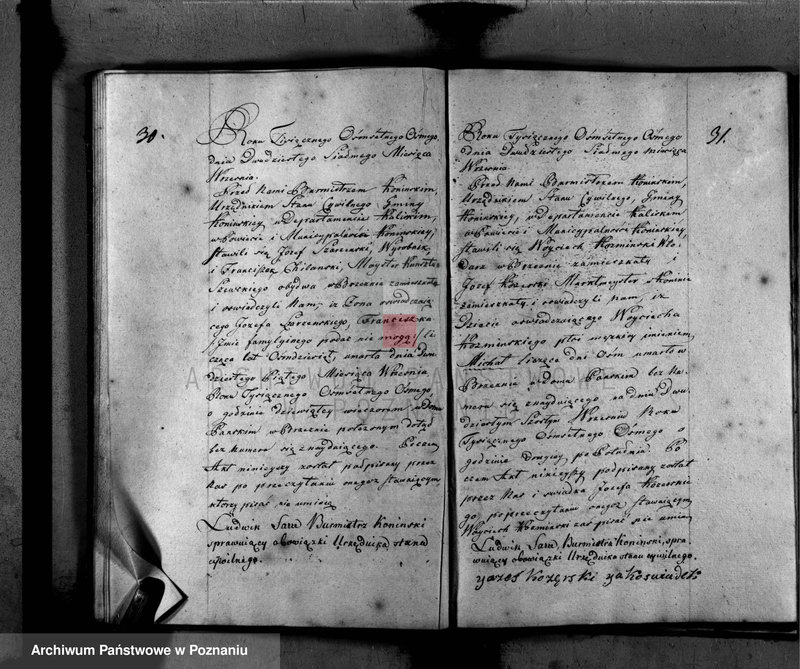 30.
Roku Tysiącznego Ośmsetnego Osmego,
dnia Dwudziestego Siodmego Miesiąca
Wrzesnia.
Przed Nami Burmistrzem Konińskim,
Urzędnikiem Stanu Cywilnego Gminy
Konińskiey, w Departamencie Kaliskim,
w Powiecie i Municypalności Konińskiey,
stawili się Jozef Wyrobnik,
i Franciszek Maystr Kunsztu
Szewskiego obydwa w Brzeznie zamieszkali
i oswiadczyli Nam, iz Zona oswiadczaią
cego Jozefa Franciszka
/:Imie familyinego podać nie mogą:/ li
cząca lat Ośmdziesiąt, umarła dnia Dwu
dziestego Piątego Miesiąca Wrzesnia
Roku Tysiącznego Ośmsetnego Osmego,
o godzinie dziewiątey wieczorem w domu
Panskim w Brzeznie położonym dotąd
bez Numeru się znayduiącego. Poczem
Akt ninieyszy został podpisany przez
Nas po przeczytaniu onegoż stawaiącym
ktorzy pisać nie umieią
Ludwik Burmistrz Koninski
sprawuiący obowiązki Urzędnika stanu
cywilnego.
31.
Roku Tysiącznego Ośmsetnego Osmego
dnia Dwudziestego Siodmego Miesiąca
Wrzesnia
Przed Nami Burmistrzem Konińskim,
Urzędnikiem Stanu Cywilnego, Gminy
Konińskiey, w Departamencie Kaliskim
w Powiecie i Municypalności Konińskiey,
stawili się Woyciech Kozminski Wło
darz w Brzeznie zamieszkały i
Jozef Kozerski w Koninie
zamieszkały, i oswiadczyli nam, iz
Dziecie oswiadczaiącego Woyciecha
Kozminskiego płci męskiey imieniem
Michał liczące dni Osm umarło w
Brzeznie w domu Panskim bez Nu
meru się znayduiącego, na dniu dwu
dziestym Szostym Wrzesnia Roku
Tysiącznego Ośmsetnego Osmego o
godzinie Drugiey, po Południu. Po
czem Akt ninieyszy podpisany został
przez Nas i swiadka Jozefa Kozerskie
go, po przeczytaniu onegoż stawaiącym,
Woyciech Kozminski zas pisać nie umie
Ludwik Burmistrz Koninski, spra
wuiący obowiązki Urzędnika stanu cywilnego.
Jozef Kozerski jako swiadek
ARCHIWUM PAŃSTWOWE
Archiwum Państwowe w Poznaniu